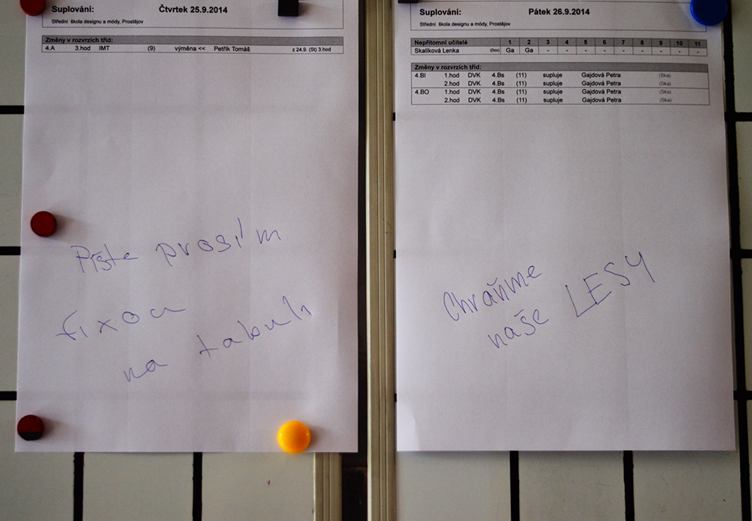 Suplování: Čtvrtek 25.9.2014
Střední škola designu a módy, Prostějov
Změny v rozvrzích tříd:
4.A 3.hod IMT (9) výměna << Petřík Tomáš z 24.9. (St) 3.hod
Pište prosím
fixou
na tabuli
Suplování: Pátek 26.9.2014
Střední škola designu a módy, Prostějov
Nepřítomní učitelé 1 2 3 4 5 6 7 8 9 10 11
Skalíková Lenka (hod) Ga Ga - - - - - - - - -
Změny v rozvrzích tříd:
4.BI 1.hod DVK 4.Bs (11) supluje Gajdová Petra (Ska)
2.hod DVK 4.Bs (11) supluje Gajdová Petra (Ska)
4.BO 1.hod DVK 4.Bs (11) supluje Gajdová Petra (Ska)
2.hod DVK 4.Bs (11) supluje Gajdová Petra (Ska)
Chraňme
naše LESY